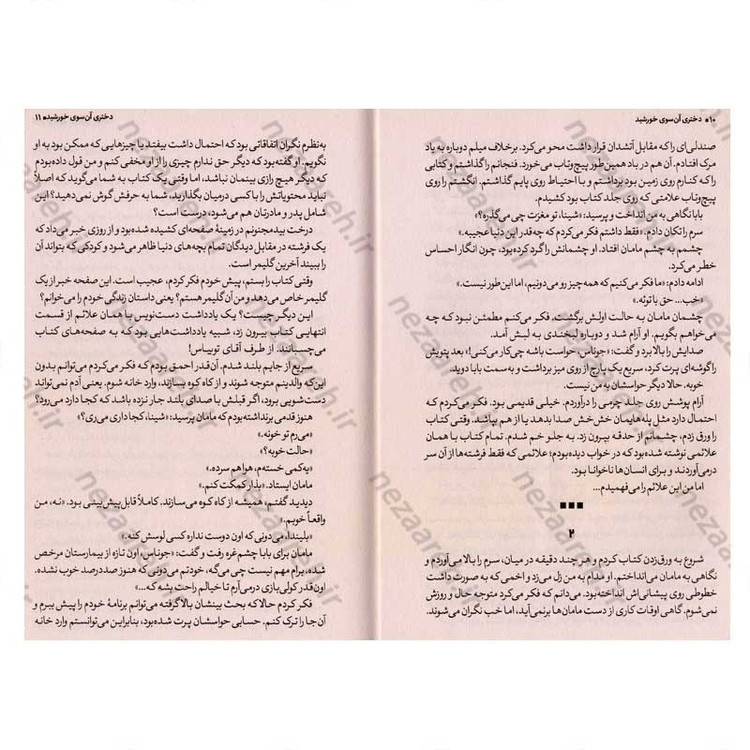 ۱۰ ■ دختری آن‌سوی خورشید
صندلی‌ای را که مقابل آتشدان قرار داشت محو می‌کرد. برخلاف میلم دوباره به یاد
مرگ افتادم. آن هم در باد همین‌طور پیچ‌وتاب می‌خورد. فنجانم را گذاشتم و کتابی
را که کنارم روی زمین بود برداشتم و با احتیاط روی پایم گذاشتم. انگشتم را روی
پیچ‌وتاب علامتی که روی جلد کتاب بود کشیدم.
بابا نگاهی به من انداخت و پرسید: «شینا، تو مغزت چی می‌گذره؟»
سرم را تکان دادم. «فقط داشتم فکر می‌کردم که چه‌قدر این دنیا عجیبه.»
چشمم به چشم مامان افتاد. او چشمانش را گرد کرده بود، چون انگار احساس
خطر می‌کرد.
ادامه دادم: «ما فکر می‌کنیم که همه‌چیز رو می‌دونیم، اما این طور نیست.»
«خب... حق با توئه.»
چشمان مامان به حالت اولش برگشت. فکر می‌کنم مطمئن نبود که چه
می‌خواهم بگویم. او آرام شد و دوباره لبخندی به لبش آمد.
صدایش را بالا برد و گفت: «جوناس، حواست باشه چی‌کار می‌کنی!» بعد پتویش
را گوشه‌ای پرت کرد، سریع یک پارچ از روی میز برداشت و به سمت بابا دوید.
خوبه. حالا دیگر حواسشان به من نیست.
آرام پوشش روی جلد چرمی را درآوردم. خیلی قدیمی بود. فکر می‌کردم که
احتمال دارد مثل پله‌هایمان خش‌خش صدا بدهد یا از هم بپاشد. وقتی کتاب
را ورق زدم، چشمانم از حدقه بیرون زد. به جلو خم شدم. تمام کتاب با همان
علائمی نوشته شده بود که در خواب دیده بودم؛ علائمی که فقط فرشته‌ها از آن سر
درمی‌آوردند و برای انسان‌ها ناخوانا بود.
اما من این علائم را می‌فهمیدم...
■■■
۲
شروع به ورق‌زدن کتاب کردم و هر چند دقیقه در میان، سرم را بالا می‌آوردم و
نگاهی به مامان می‌انداختم. او مدام به من زل می‌زد و اخمی که به صورت داشت
خطوطی روی پیشانی‌اش انداخته بود. می‌دانم که فکر می‌کرد متوجه حال و روزش
نمی‌شوم. گاهی اوقات کاری از دست مامان‌ها برنمی‌آید، اما خب نگران می‌شوند.
دختری آن‌سوی خورشید ■ ۱۱
به‌نظرم نگران اتفاقاتی بود که احتمال داشت بیفتد یا چیزهایی که ممکن بود به او
نگویم. او گفته بود که دیگر حق ندارم چیزی را از او مخفی کنم و من قول داده بودم
که دیگر هیچ رازی بینمان نباشد، اما وقتی یک کتاب به شما می‌گوید که اصلاً
نباید محتویاتش را با کسی درمیان بگذارید، شما به حرفش گوش نمی‌دهید؟ این
شامل پدر و مادرتان هم می‌شود، درست است؟
درخت بیدمجنونم در زمینهٔ صفحه‌ای کشیده شده بود و از روزی خبر می‌داد که
یک فرشته در مقابل دیدگان تمام بچه‌های دنیا ظاهر می‌شود و کودکی که بتواند آن
را ببیند آخرین گلیمر است.
وقتی کتاب را بستم، پیش خودم فکر کردم، عجیب است. این صفحه خبر از یک
گلیمر خاص می‌دهد و من آن گلیمر هستم؟ یعنی داستان زندگی خودم را می‌خوانم؟
این دیگر چیست؟ یک یادداشت دست‌نویس با همان علائم از قسمت
انتهایی کتاب بیرون زد، شبیه یادداشت‌هایی بود که به صفحه‌های کتاب
می‌چسبانند. از طرف آقای توبیاس!
سریع از جایم بلند شدم. آن‌قدر احمق بودم که فکر می‌کردم می‌توانم بدون
این‌که والدینم متوجه شوند و از کاه کوه بسازند، وارد خانه شوم. یعنی آدم نمی‌تواند
دست‌شویی برود، اگر قبلش با صدای بلند جار نزده باشد که کجا دارد می‌رود؟
هنوز قدمی برنداشته بودم که مامان پرسید: «شینا، کجا داری می‌ری؟»
«می‌رم تو خونه.»
«حالت خوبه؟»
«یه‌کمی خسته‌م، هوا هم سرده.»
مامان ایستاد. «بذار کمکت کنم.»
دیدید گفتم، همیشه از کاه کوه می‌سازند. کاملاً قابل پیش‌بینی بود. «نه، من
واقعاً خوبم.»
«بلیندا، می‌دونی که اون دوست نداره کسی لوسش کنه.»
مامان برای بابا چشم‌غره رفت و گفت: «جوناس، اون تازه از بیمارستان مرخص
شده، برام مهم نیست چی می‌گه، خودتم می‌دونی که هنوز صددرصد خوب نشده.
اون‌قدر کولی‌بازی درمی‌آرم تا خیالم راحت بشه که...»
فکر کردم حالا که بحث بینشان بالا گرفته می‌توانم برنامهٔ خودم را پیش ببرم و
آن‌جا را ترک کنم. حسابی حواسشان پرت شده بود، بنابراین می‌توانستم وارد خانه
nezaaleh.ir